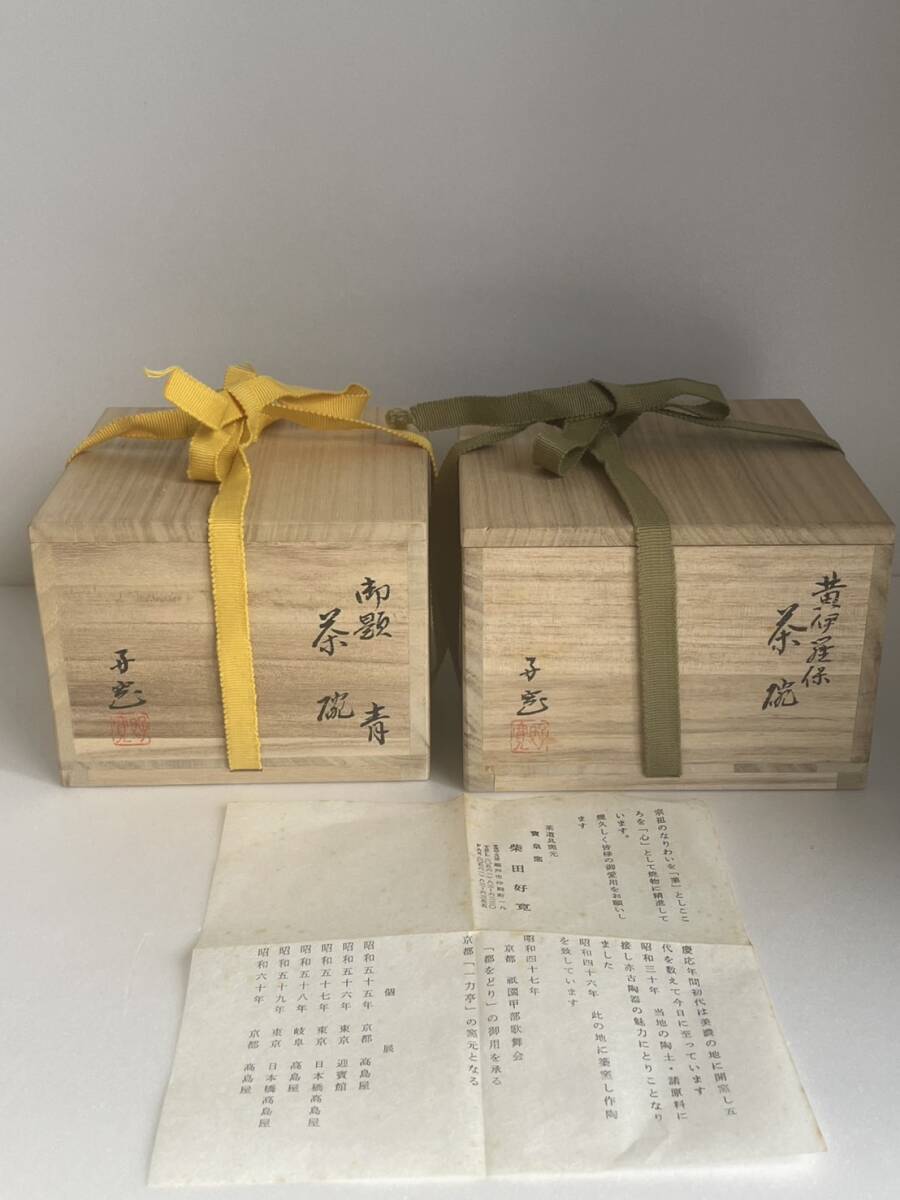 御題 青
茶碗
黄伊羅保
茶碗
宗祖のなりわいを「業」としここ
ろを「心」として焼物に精進して
います。
幾久しく皆様の御愛用をお願いし
ます
茶道具窯元
寶泉窯
柴田好寛
慶応年間初代は美濃の地に開窯し五
代を数えて今日に至っています
昭和三十年 当地の陶土・諸原料に
接し亦古陶器の魅力にとりことなり
ました
昭和四十六年 此の地に築窯し作陶
を致しています
昭和四十七年
京都 祇園甲部歌舞会
「都をどり」の御用を承る
京都「一力亭」の窯元となる
個展
昭和五十五年 京都 高島屋
昭和五十六年 東京 迎賓館
昭和五十七年 東京 日本橋高島屋
昭和五十八年 岐阜 高島屋
昭和五十九年 東京 日本橋高島屋
昭和六十年 京都 高島屋